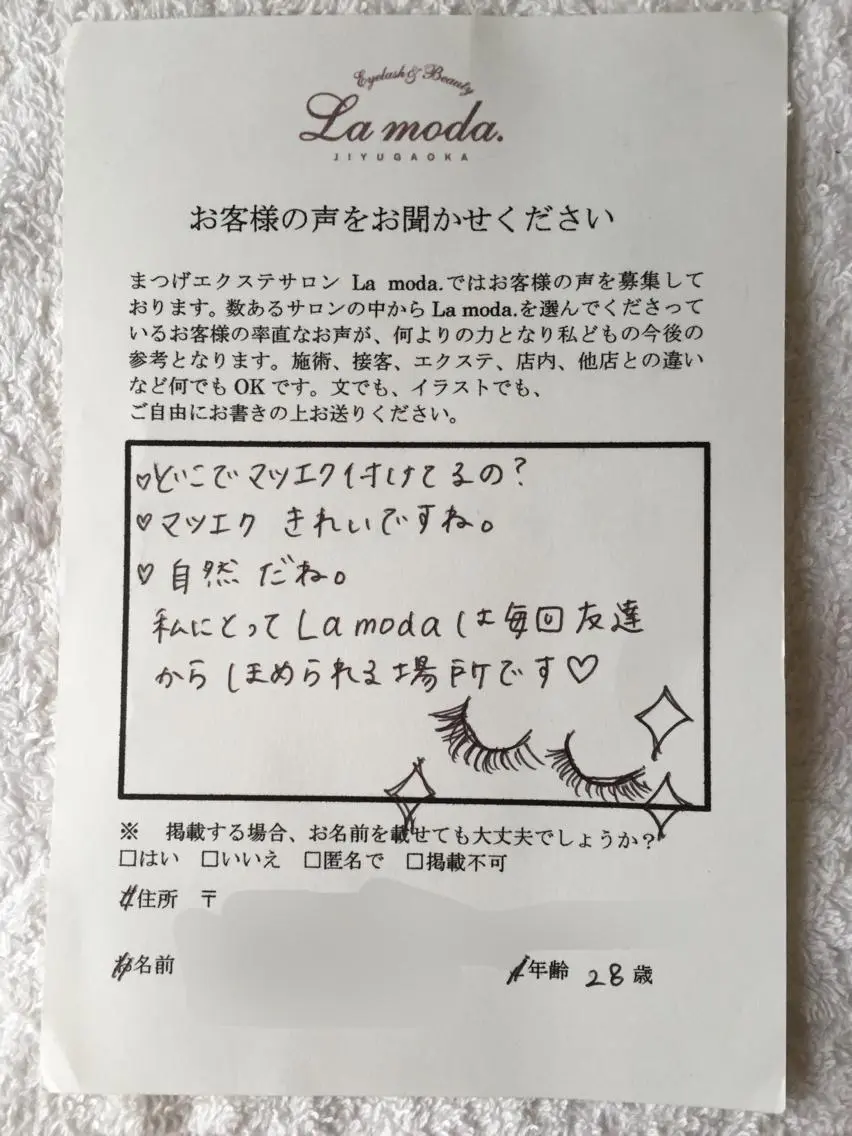 Eyelash & Beauty
La moda.
JIYUGAOKA
お客様の声をお聞かせください
まつげエクステサロン La moda.ではお客様の声を募集して
おります。数あるサロンの中から La moda.を選んでくださって
いるお客様の率直なお声が、何よりの力となり私どもの今後の
参考となります。施術、接客、エクステ、店内、他店との違い
など何でも OK です。文でも、イラストでも、
ご自由にお書きの上お送りください。
♡どこでマツエク付けてるの?
♡マツエク きれいですね。
♡自然だね。
私にとって La moda は毎回友達
からほめられる場所です♡
※ 掲載する場合、お名前を載せても大丈夫でしょうか?
□はい □いいえ □匿名で □掲載不可
住所 〒
名前
年齢 28歳